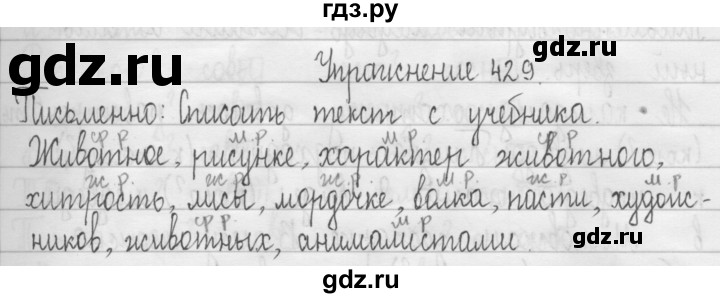 гдз.ру
gdz.ru gdz.ru
Упражнение 429.
Письменно: Списать текст с учебника.
ср.р. м.р. м.р. ср.р.
Животное, рисунке, характер животного,
ж.р. ж.р. ж.р. м.р. ж.р. м.р.
хитрость, лисы, мордочке, волка, пасти, худож-
ср.р. м.р.
ников, животных, анималистами.
gdz.ru
gdz.ru
gdz.ru